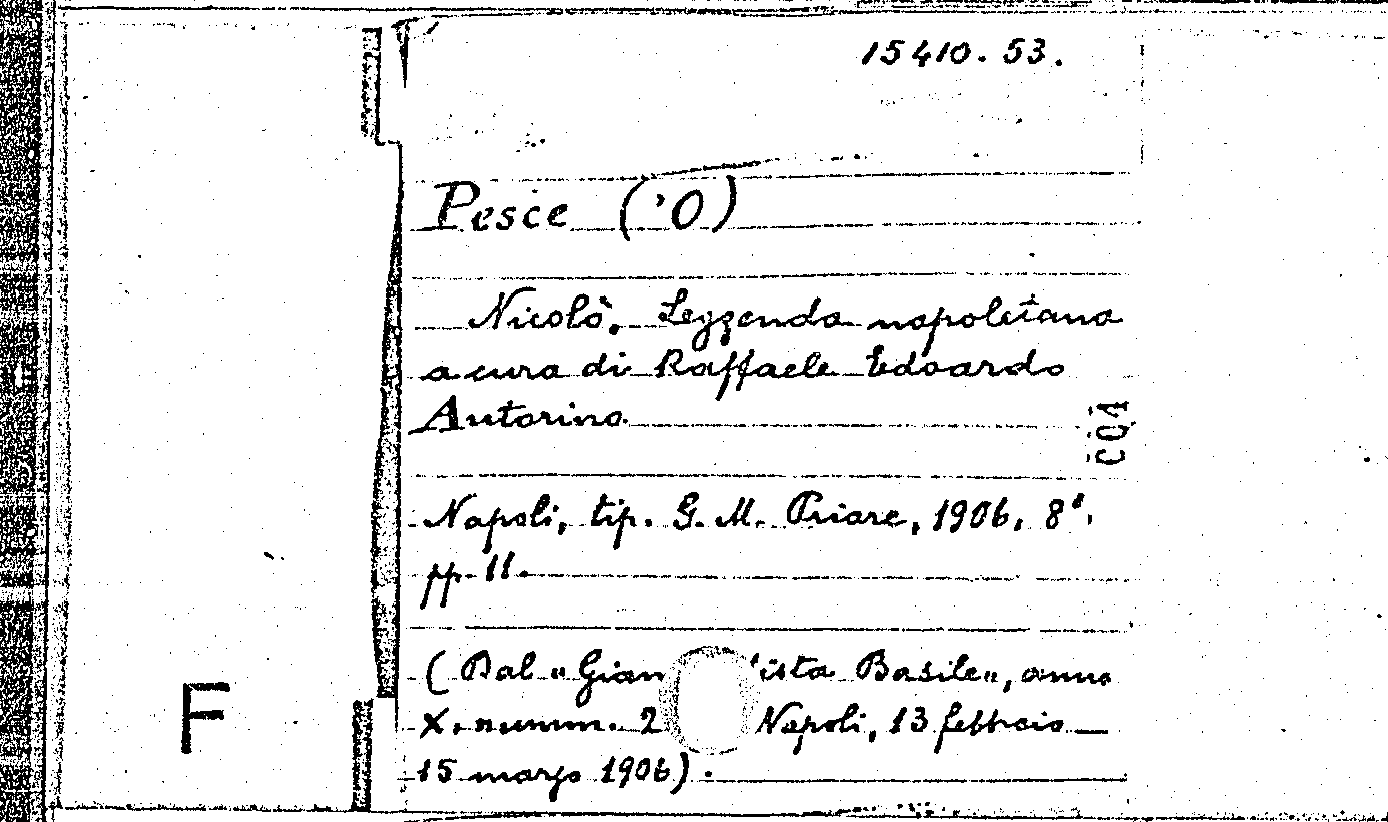 15410.53.
Pesce ('O)
Nicolò. Leggenda napoletana
a cura di Raffaele Edoardo
Autorino
CQ1
Napoli, tip. G. M. Priore, 1906, 8°.
pp. 11.
(Dal "Gian ista Basile", anno
X. numm. 2 Napoli, 13 febbraio —
15 marzo 1906).
F